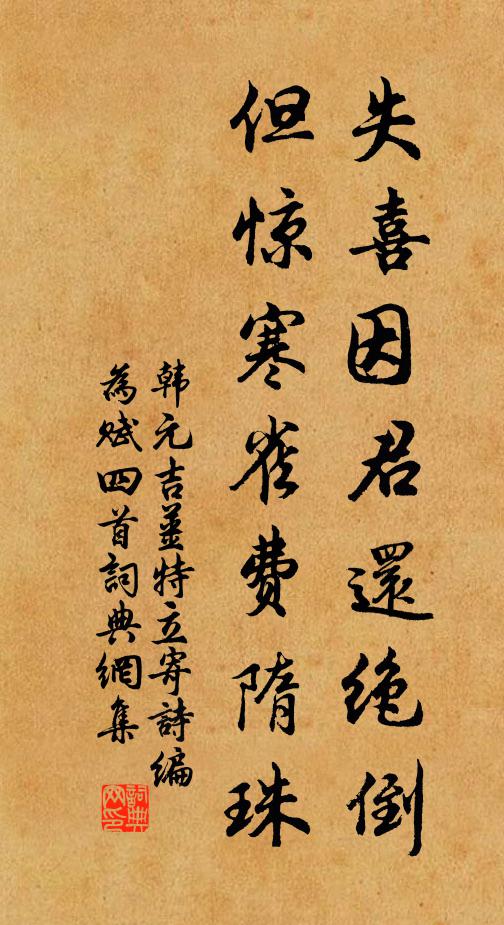 失喜因君還绝倒
但惊寒雀费隋珠
韩元吉姜特立寄詩编
為赋四首詞典網集
詞典网印